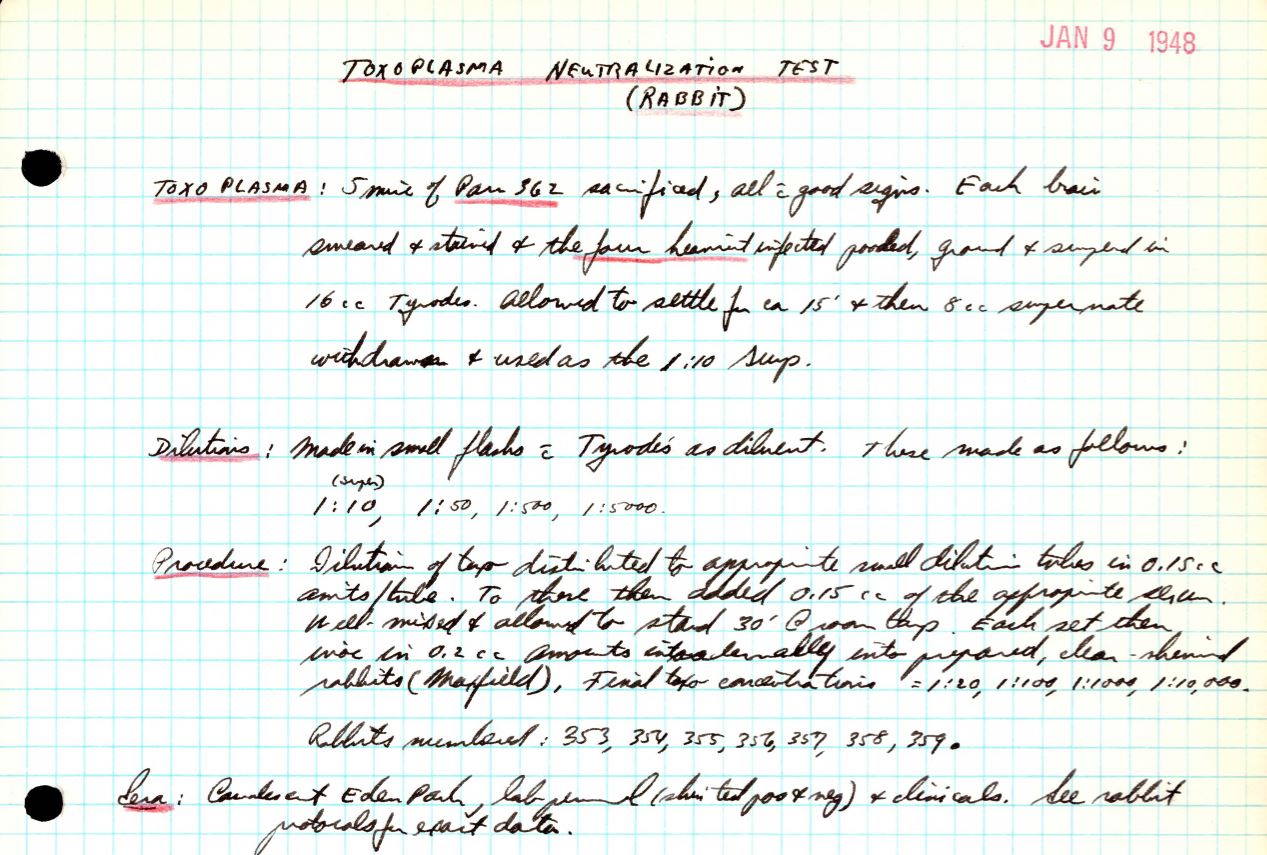 JAN 9 1948
TOXOPLASMA NEUTRALIZATION TEST
(RABBIT)
TOXOPLASMA: 5 mice of Pan 362 sacrificed, all c̄ good signs. Each brain
smeared & stained & the four heaviest infected pooled, ground & suspend in
16 cc Tyrodes. Allowed to settle for ca 15' & then 8 cc supernate
withdrawn & used as the 1:10 susp.
Dilutions: Made in small flasks c̄ Tyrode's as diluent. These made as follows:
(super)
1:10, 1:50, 1:500, 1:5000.
Procedure: Dilution of toxo distributed to appropriate small dilution tubes in 0.15 cc
amts/tube. To these then added 0.15 cc of the appropriate serum.
Well-mixed & allowed to stand 30' @ room temp. Each set then
inoc in 0.2 cc amounts intradermally into prepared, clear-skinned
rabbits (Maxfield). Final toxo concentrations = 1:20, 1:100, 1:1000, 1:10,000.
Rabbits numbered: 353, 354, 355, 356, 357, 358, 359.
Sera: Convalescent Eden Park, lab personnel (skin tested pos & neg) & clinicals. See rabbit
protocals for exact data.